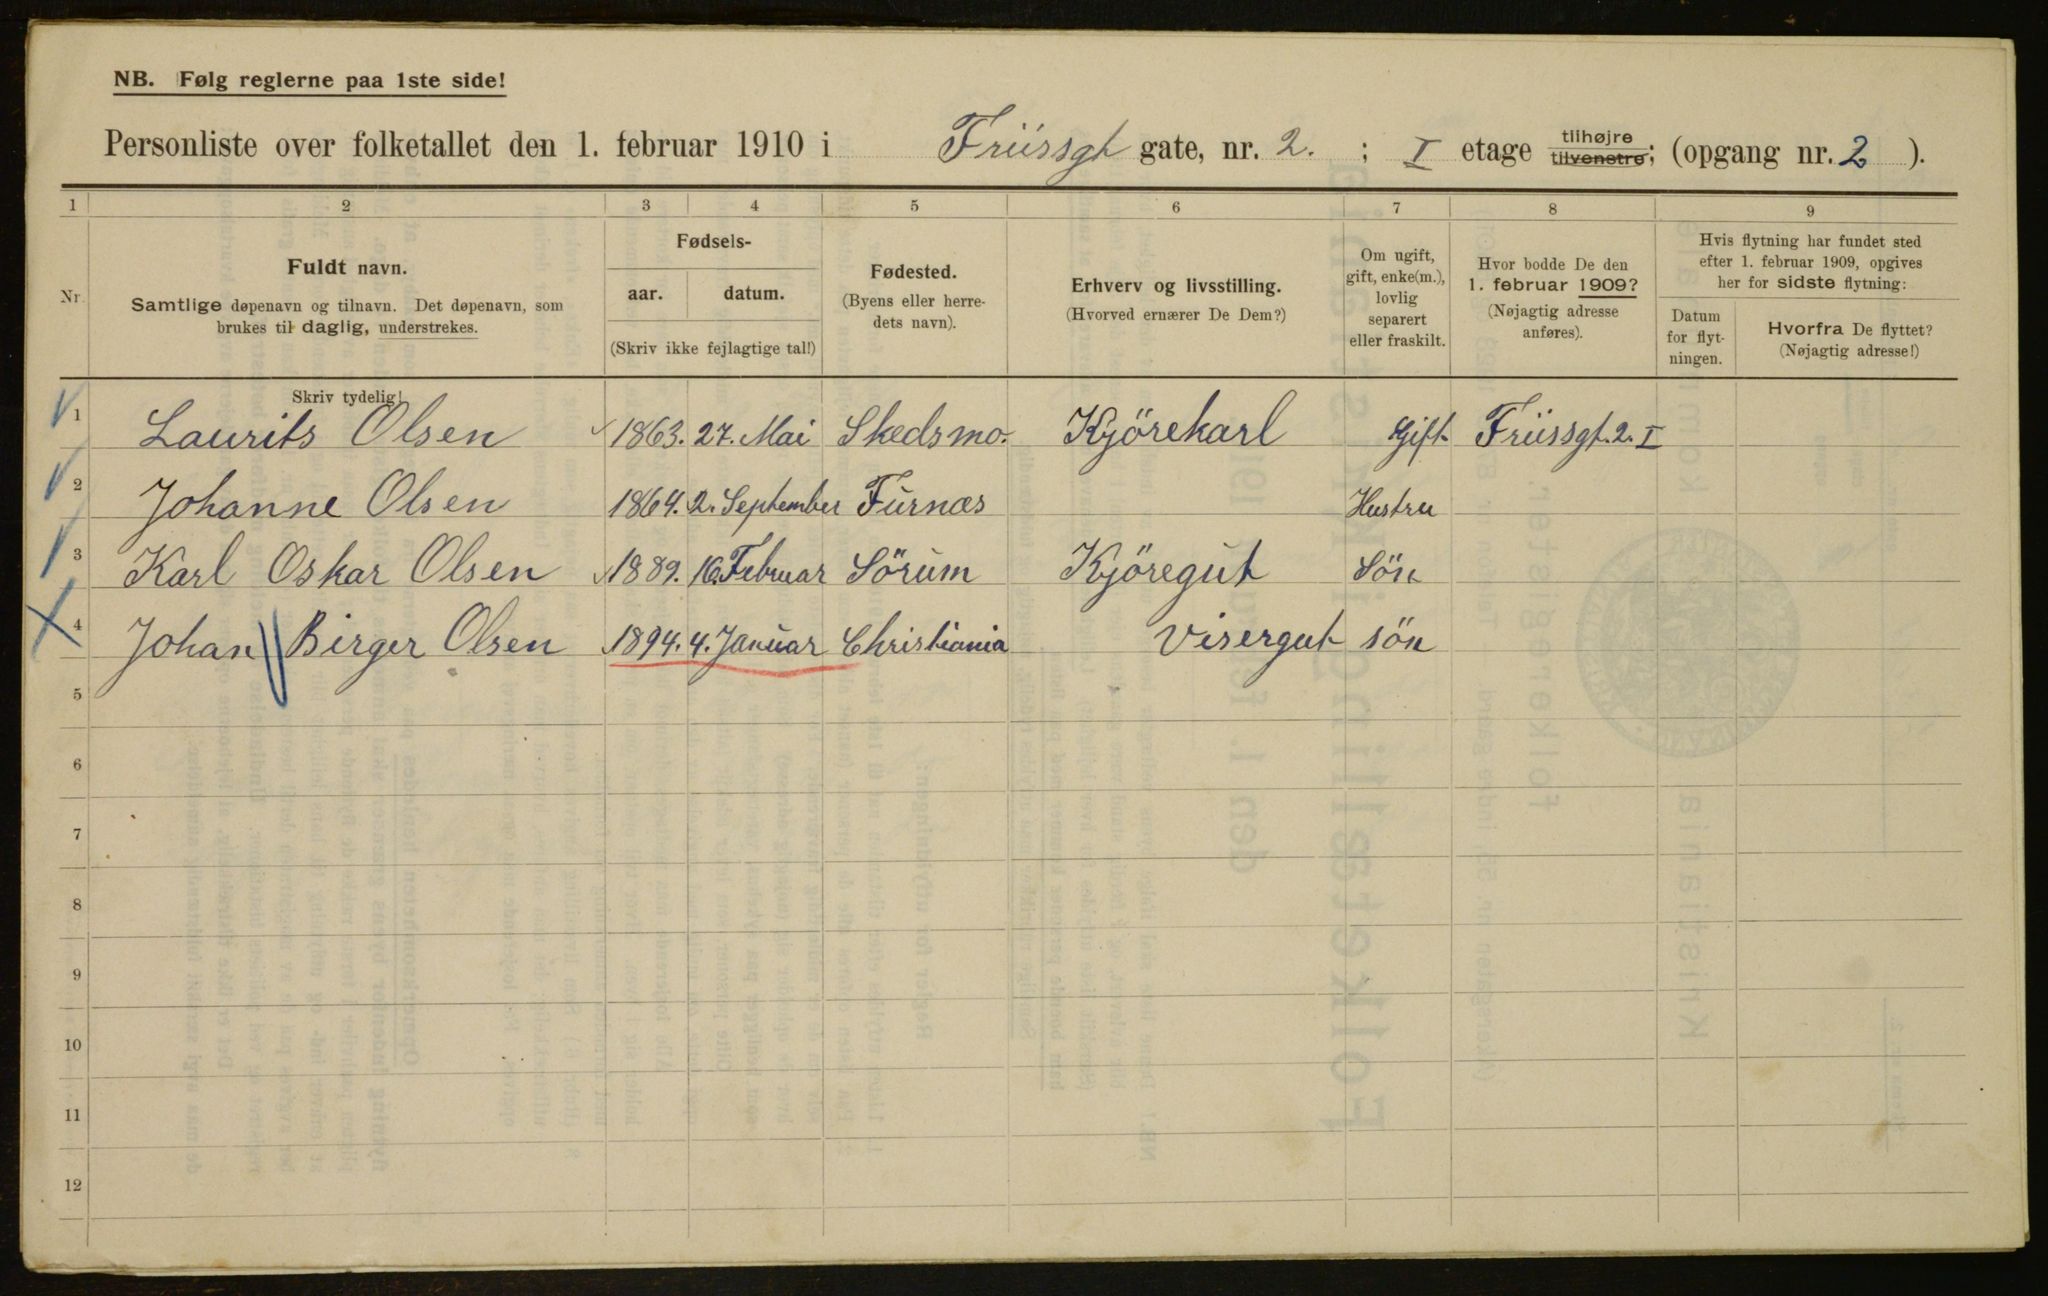 NB. Følg reglerne paa 1ste side!
Personliste over folketallet den 1. februar 1910 i Friissgt gate, nr. 2. ; I etage tilhøjre tilvenstre; (opgang nr. 2 ).
1 2 3 4 5 6 7 8 9
Nr.
Fuldt navn.
Samtlige døpenavn og tilnavn. Det døpenavn, som
brukes til daglig, understrekes.
Fødsels-
aar. datum.
(Skriv ikke fejlagtige tal!)
Fødested.
(Byens eller herre-
dets navn).
Erhverv og livsstilling.
(Hvorved ernærer De Dem?)
Om ugift,
gift, enke(m.),
lovlig
separert
eller fraskilt.
Hvor bodde De den
1. februar 1909?
(Nøjagtig adresse
anføres).
Hvis flytning har fundet sted
efter 1. februar 1909, opgives
her for sidste flytning:
Datum
for flyt-
ningen.
Hvorfra De flyttet?
(Nøjagtig adresse!)
Skriv tydelig!
1 Laurits Olsen 1863. 27. Mai Skedsmo. Kjörekarl Gift Friissgt. 2. I
2 Johanne Olsen 1864. 2. September Furnæs Hustru
3 Karl Oskar Olsen 1889. 16. Februar Sörum Kjöregut Sön
4 Johan Birger Olsen 1894. 4. Januar Christiania Visergut sön
5
6
7
8
9
10
11
12